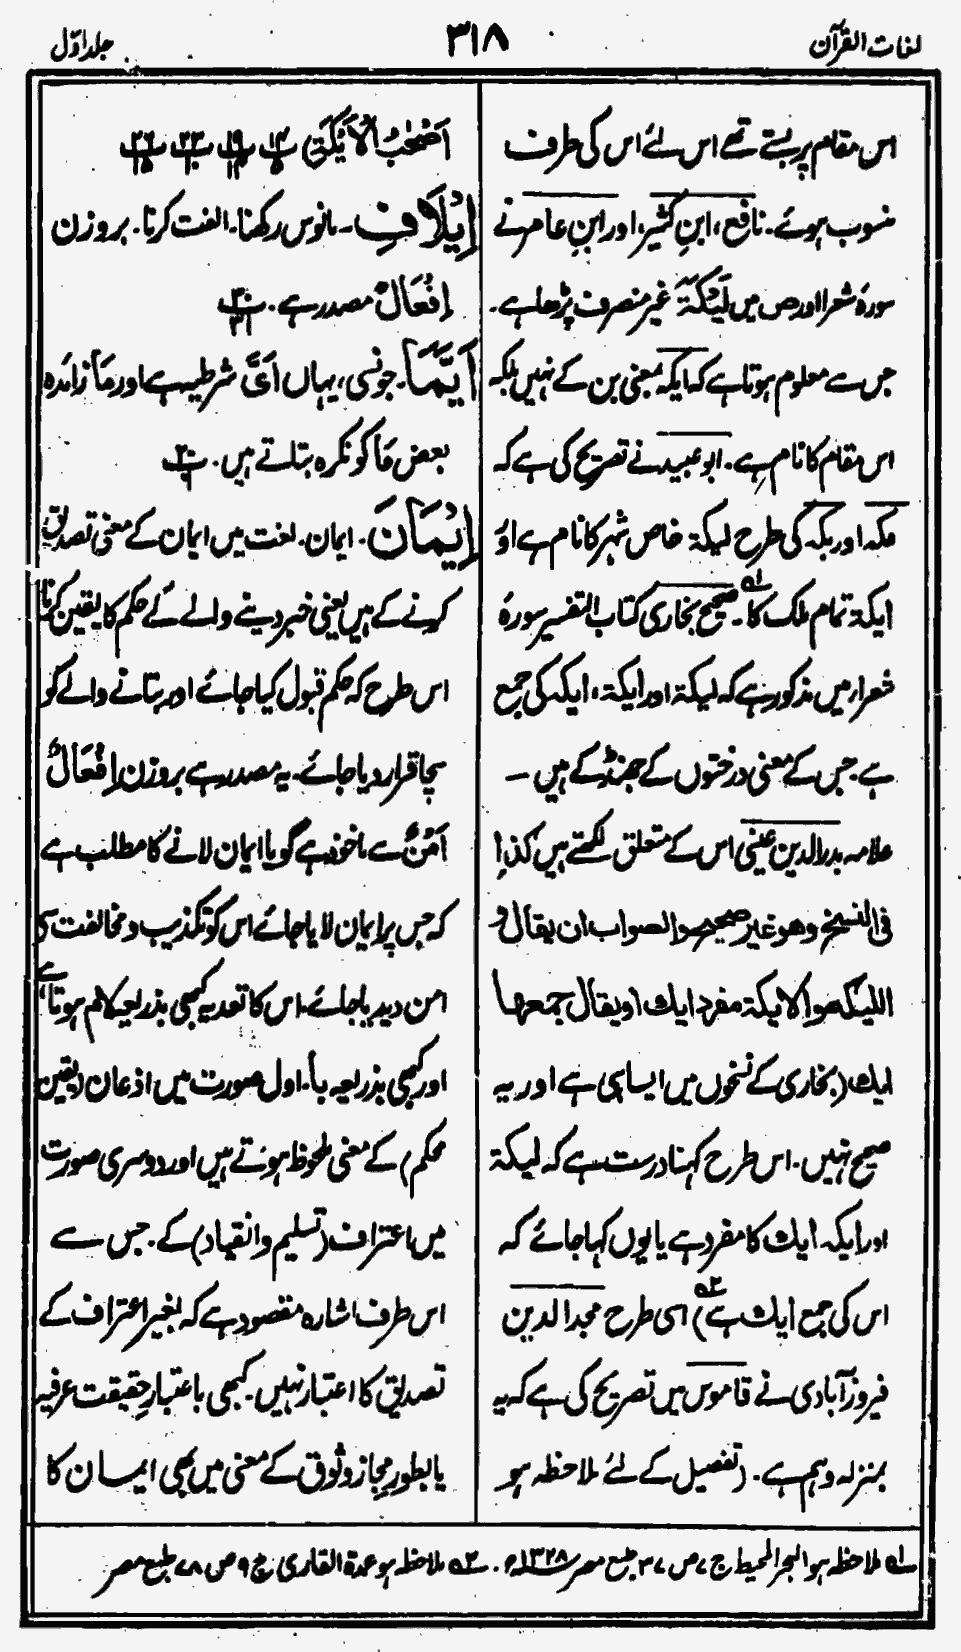 لغات القرآن
۳۱۸
جلد اوّل
اس مقام پر بستے تھے اس لئے اس کی طرف
منسوب ہوئے۔ نافع، ابنِ کثیر، اور ابنِ عامر نے
سورۂ شعرا اور ص میں لَیْکَۃَ غیر منصرف پڑھا ہے۔
جس سے معلوم ہوتا ہے کہ ایکہ معنی بن کے نہیں بلکہ
اس مقام کا نام ہے۔ ابو عبید نے تصریح کی ہے کہ
مکہ اور بکہ کی طرح لیکۃ خاص شہر کا نام ہے اوَر
ایکۃ تمام ملک کا۔ لہ صحیح بخاری کتاب التفسیر سورۂ
شعراء میں مذکور ہے کہ لیکۃ اور ایکۃ، ایکہ کی جمع
ہے۔ جس کے معنی درختوں کے جھنڈ کے ہیں ۔
علامہ بدر الدین عینی اس کے متعلق لکھتے ہیں کذا
فی النسخ وھو غیر صحیح والصواب ان یقال و
اللیکۃ والایکۃ مفرد ایک او یقال جمعھا
ایک (بخاری کے نسخوں میں ایسا ہی ہے اور یہ
صحیح نہیں۔ اس طرح کہنا درست ہے کہ لیکۃ
اور ایکہ ایک کا مفرد ہے یا یوں کہا جائے کہ
اس کی جمع ایک ہے) ۲ہ اسی طرح مجد الدین
فیروز آبادی نے قاموس میں تصریح کی ہے کہ یہ
بمنزلہ وہم ہے۔ (تفصیل کے لئے ملاحظہ ہو
اَصْحٰبُ الْاَیْکَۃِ)
اِیْلَافِ۔ مانوس رکھنا۔ الفت کرنا۔ بروزن
اِفْعَالٌ مصدر ہے۔
اَیَّمَا۔ جونسی، یہاں اَیَّ شرطیہ ہے اور مَا زائدہ
بعض مَا کو نکرہ بتلاتے ہیں۔
اِیْمَانَ۔ ایمان۔ لغت میں ایمان کے معنی تصدیق
کرنے کے ہیں یعنی خبر دینے والے کے حکم کا یقین کرنا
اس طرح کہ حکم قبول کیا جائے اور بتانے والے کو
سچا قرار دیا جائے۔ یہ مصدر ہے بروزن اِفْعَالٌ
اَمْنٌ سے ماخوذ ہے گویا ایمان لانے کا مطلب ہے
کہ جس پر ایمان لایا جائے اس کو تکذیب و مخالفت سے
امن دیدیا جائے۔ اس کا تعدیہ کبھی بذریعہ لام ہوتا ہے
اور کبھی بذریعہ با۔ اول صورت میں اذعان (یقین
محکم) کے معنی ملحوظ ہوتے ہیں اور دوسری صورت
میں اعتراف (تسلیم و انقیاد) کے۔ جس سے
اس طرف اشارہ مقصود ہے کہ بغیر اعتراف کے
تصدیق کا اعتبار نہیں۔ کبھی باعتبارِ حقیقت عرفیہ
یا بطورِ مجاز وثوق کے معنی میں بھی ایمان کا
لہ ملاحظہ ہو البحر المحیط ج ۷ ص ۳۷ طبع مصر ۱۳۲۸ھ۔ ۲ہ ملاحظہ ہو عمدۃ القاری ج ۹ ص ۷۸ طبع مصر